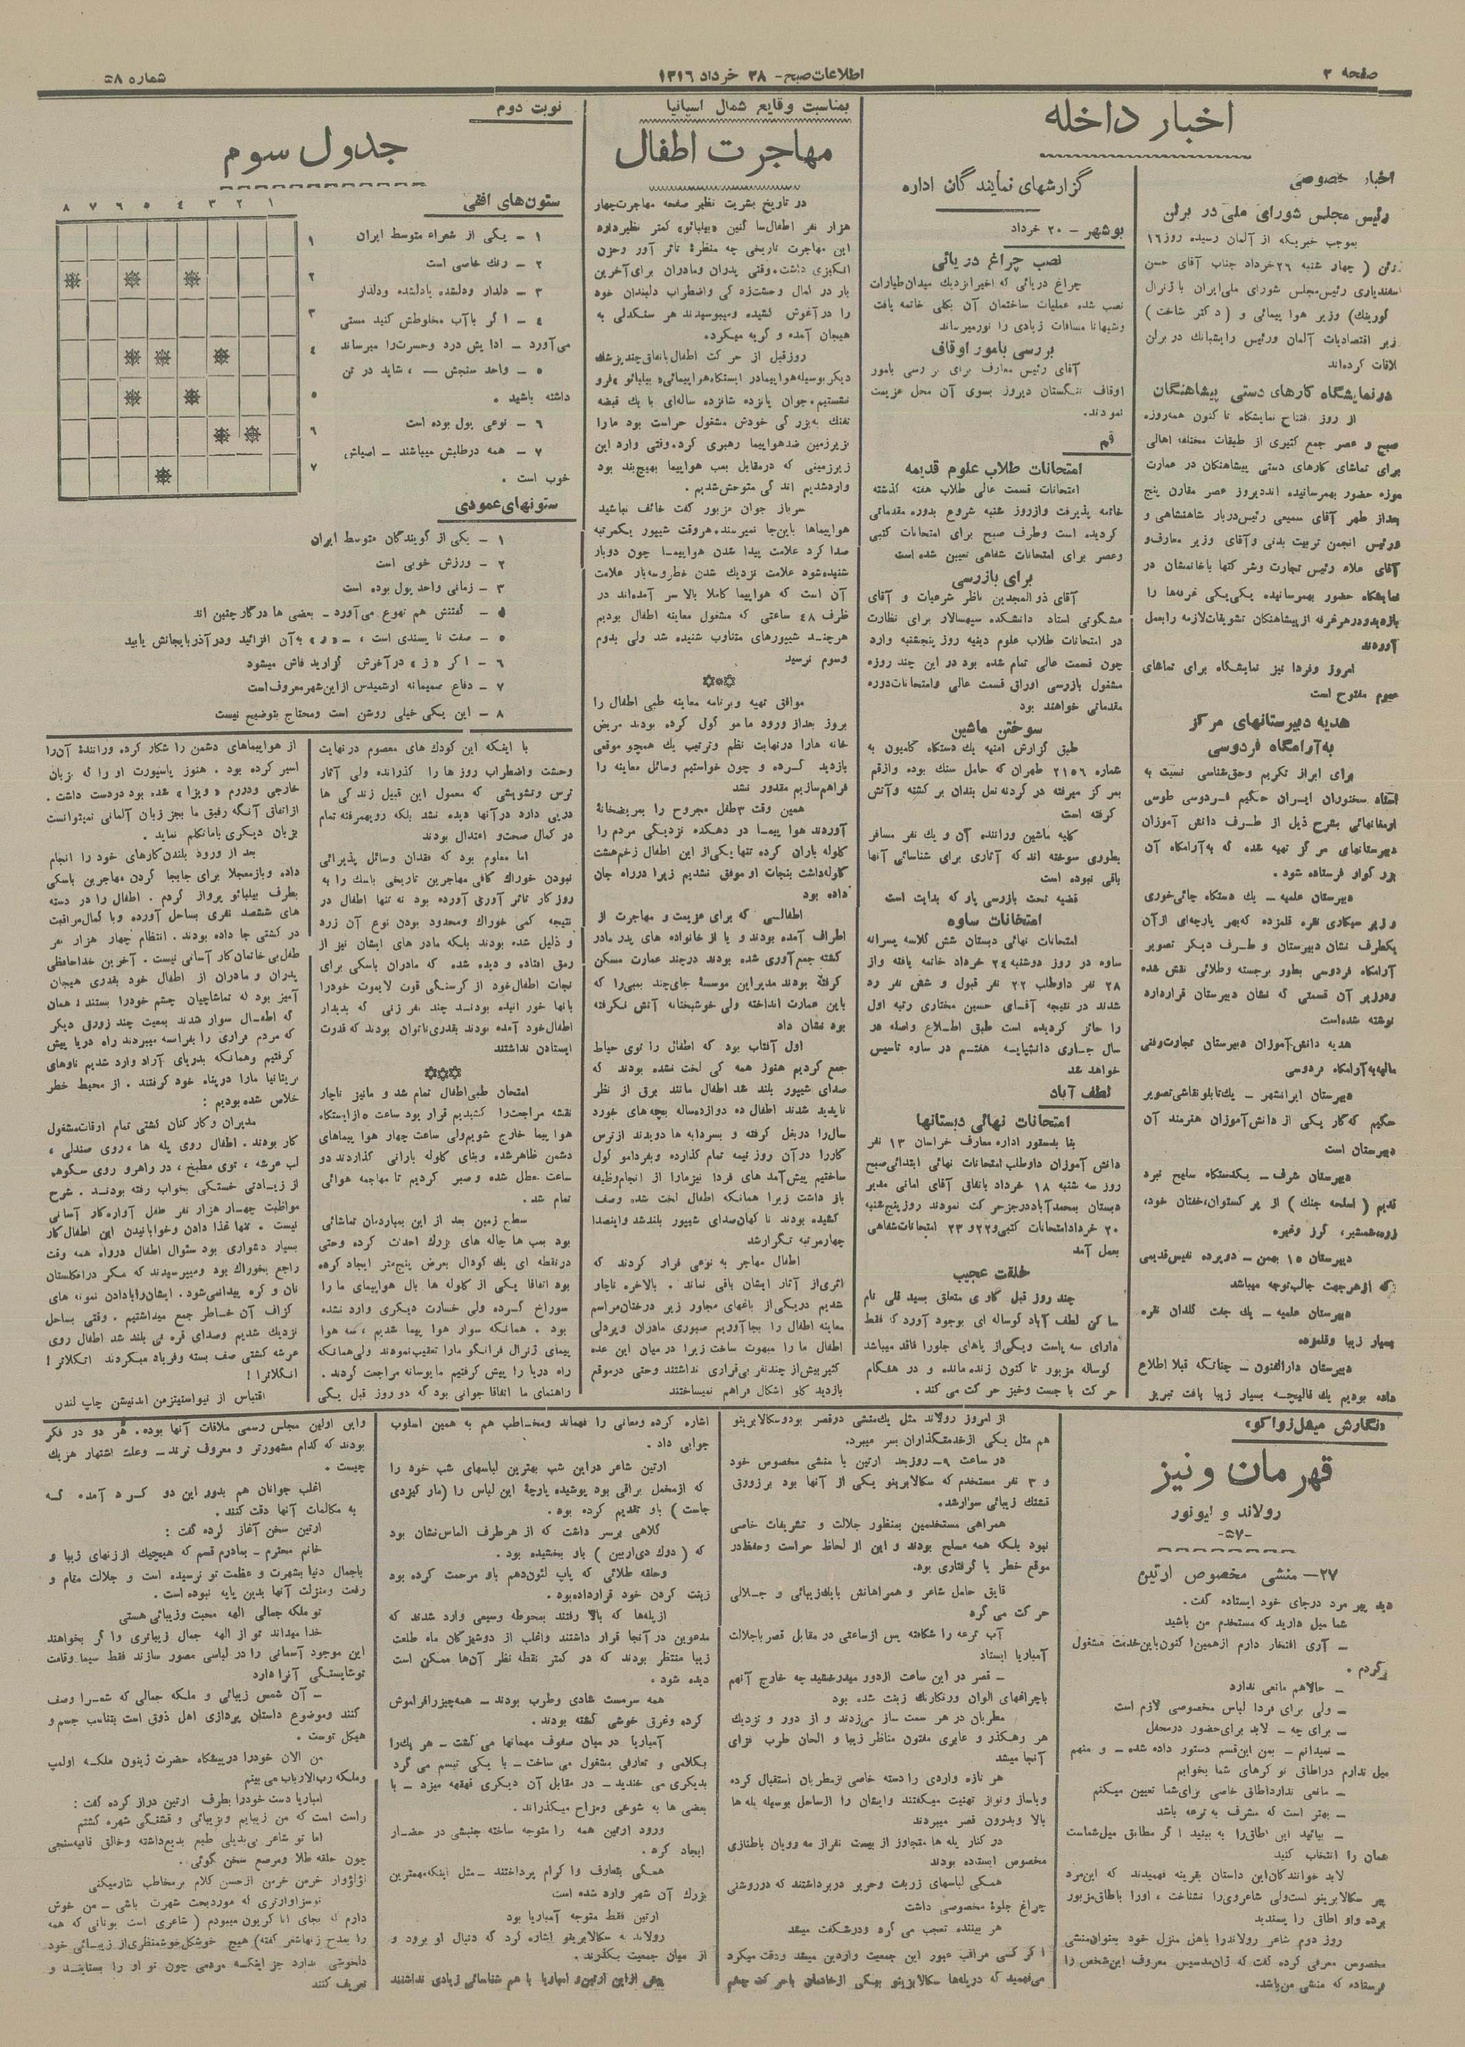 صفحه ۲
اطلاعات صبح - ۲۸ خرداد ۱۳۱۶
شماره ۵۸
اخبار داخله
اخبار خصوصی
رئیس مجلس شورای ملی در برلن
بموجب خبریکه از آلمان رسیده روز ۱۶
ژوئن ( چهار شنبه ۲۶ خرداد جناب آقای حسن
اسفندیاری رئیس مجلس شورای ملی ایران با ژنرال
گورینك) وزیر هوا پیمائی و ( دکتر شاخت )
زیر اقتصادیات آلمان ورئیس رایشبانك در برلن
لاقات کرده‌اند
در نمایشگاه کارهای دستی پیشاهنگان
از روز افتتاح نمایشگاه تا کنون همه‌روزه
صبح و عصر جمع کثیری از طبقات مختلفه اهالی
برای تماشای کارهای دستی پیشاهنگان در عمارت
موزه حضور بهمرسانیده اند دیروز عصر مقارن پنج
بعداز ظهر آقای سمیعی رئیس دربار شاهنشاهی و
ورئیس انجمن تربیت بدنی وآقای وزیر معارف و
آقای علاء رئیس تجارت وشرکتها باخانمشان در
نمایشگاه حضور بهمرسانیده یکی‌یکی غرفه‌ها را
بازدید ودرهرغرفه از پیشاهنگان تشویقات لازمه را بعمل
آوردند
امروز وفردا نیز نمایشگاه برای تماشای
عموم مفتوح است
هدیه دبیرستانهای مرکز
به‌آرامگاه فردوسی
برای ابراز تکریم وحق‌شناسی نسبت به
استاد سخنوران ایـران حکیم فـردوسی طوسی
ارمغانهائی بشرح ذیل از طـرف دانش آموزان
دبیرستانهای مرکز تهیه شده که به‌آرامگاه آن
بزرگوار فرستاده شود .
دبیرستان علمیه – یك دستگاه چائی‌خوری
و زیر سیگاری نقره قلمزده که‌بهر پارچه‌ای از آن
یکطرف نشان دبیرستان و طـرف دیگر تصویر
آرامگاه فردوسی بطور برجسته وطلائی نقش شده
ودرزیر آن قسمتی که نشان دبیرستان قراردارد
نوشته شده‌است
هدیه دانش‌آموزان دبیرستان تجارت‌وفنی
مالیه به‌آرامگاه فردوسی
دبیرستان ایرانشهر – یك‌تابلو نقاشی تصویر
حکیم که‌کار یکی از دانش‌آموزان هنرمند آن
دبیرستان است
دبیرستان شرف – یکدستگاه سلیح نبرد
قدیم ( اسلحه جنك ) از بر گستوان، خفتان خود،
زره، شمشیر، گرز وغیره
دبیرستان ۱۵ بهمن – دوپرده نفیس‌قدیمی
که ازهرجهت جالب توجه میباشد
دبیرستان علمیه – یك جفت گلدان نقره
بسیار زیبا وقلمزده
دبیرستان دارالفنون – چنانکه قبلا اطلاع
داده بودیم یك قالیچـه بسیار زیبا بافت تبریز
گزارشهای نمایندگان اداره
بوشهر – ۲۰ خرداد
نصب چراغ دریائی
چراغ دریائی که اخیرانزدیك میدان‌طیارات
نصب شده عملیات ساختمان آن بکلی خاتمه یافت
وشبهانا مسافات زیادی را نورمیرساند
بررسی بامور اوقاف
آقای رئیس معارف برای بررسی بامور
اوقاف تنگستان دیروز بسوی آن محل عزیمت
نمودند.
قم
امتحانات طلاب علوم قدیمه
امتحانات قسمت عالی طلاب هفته گذشته
خاتمه پذیرفت وازروز شنبه شروع بدوره مقدماتی
گردیده است وطرف صبح برای امتحانات کتبی
وعصر برای امتحانات شفاهی تعیین شده است
برای بازرسی
آقای ذوالمجدین ناظر شرعیات و آقای
مشکوتی استاد دانشکده سپهسالار برای نظارت
در امتحانات طلاب علوم دینیه روز پنجشنبه وارد
چون قسمت عالی تمام شده بود در این چند روزه
مشغول بازرسی اوراق قسمت عالی وامتحانات‌دوره
مقدماتی خواهند بود
سوختن ماشین
طبق گزارش امنیه یك دستگاه کامیون به
شماره ۲۱۵۶ طهران که حامل سنك بوده وازقم
بمرکز میرفته در گردنه نعل بندان برگشته وآتش
گرفته است
کلیه ماشین وراننده آن و یك نفر مسافر
بطوری سوخته اند که آثاری برای شناسائی آنها
باقی نبوده است
قضیه تحت بازرسی پارکه بدایت است
امتحانات ساوه
امتحانات نهائی دبستان شش کلاسه پسرانه
ساوه در روز دوشنبه ۲۴ خرداد خاتمه یافته واز
۲۸ نفر داوطلب ۲۲ نفر قبول و شش نفر رد
شدند در نتیجه آقـای حسین مختاری رتبه اول
را حائز گردیده است طبق اطـلاع واصله در
سال جـاری دانشپایـه هفتـم در ساوه تاسیس
خواهد شد
لطف آباد
امتحانات نهائی دبستانها
بنا بدستور اداره معارف خراسان ۱۳ نفر
دانش آموزان داوطلب امتحانات نهائی ابتدائی‌صبح
روز سه شنبه ۱۸ خرداد باتفاق آقای امانی مدیر
دبستان بمحمدآباددرجز حرکت نمودند روزپنج‌شنبه
۲۰ خرداد امتحانات کتبی و۲۲و ۲۳ امتحانات‌شفاهی
بعمل آمد
خلقت عجیب
چند روز قبل گاوی متعلق بسید قلی نام
ساکن لطف آباد گوساله ای بوجود آورد که فقط
دارای سه پاست ویکی‌از پاهای جلورا فاقد میباشد
گوساله مزبور تا کنون زنده مانده و در هنگام
حرکت با جست وخیز حرکت می کند .
بمناسبت وقایع شمال اسپانیا
مهاجرت اطفال
در تاریخ بشریت نظیر صفحه مهاجرت‌چهار
هزار نفر اطفال‌ساکنین «بیلبائو» کمتر نظیردارد
این مهاجرت تاریخی چه منظرهٔ تاثر آور وحزن
انگیزی داشت. وقتی پدران ومادران برای‌آخرین
بار در کمال وحشت‌زدگی واضطراب دلبندان خود
را درآغوش کشیده ومیبوسیدند هر سنگدلی به
هیجان آمده و گریه میکرد.
روزقبل از حرکت اطفال باتفاق چندپزشك
دیگر بوسیله‌هواپیمادر ایستگاه‌هواپیمائی« بیلبائو »فرو
نشستیم. جوان پانزده شانزده ساله‌ای با یك قبضه
تفنك به‌بزرگی خودش مشغول حراست بود مارا
بزیرزمین ضدهواپیما رهبری کرد. وقتی وارد این
زیرزمینی که درمقابل بمب هواپیما بهیچ‌بند بود
واردشدیم اندکی متوحش‌شدیم .
سرباز جوان مزبور گفت خائف نباشید
هواپیماها باین‌جا نمیرسند. هروقت شیپور یکمرتبه
صدا کرد علامت پیدا شدن هواپیمـا چون دوبار
شنیده‌شود علامت نزدیك شدن خطر وسه‌بار علامت
آن است که هواپیما کاملا بالا سر آمده‌اند در
ظرف ٤۸ ساعتی که مشغول معاینه اطفال بودیم
هرچنـد شیپورهای متناوب شنیده شد ولی بدوم
وسوم نرسید
موافق تهیه وبرنامه معاینه طبی اطفال را
بروز بعداز ورود ما موکول کرده بودند مریض
خانه هارا درنهایت نظم وترتیب یك همچو موقعی
بازدید کـرده و چون خواستیم وسائل معاینه را
فراهم‌سازیم مقدور نشد
همین وقت ۳طفل مجروح را بمریضخانهٔ
آوردند هوا پیمـا در دهکده نزدیکی مردم را
گلوله باران کرده تنها یکی‌از این اطفال زخم‌هشت
گلوله‌داشت بنجات او موفق نشدیم زیرا درراه جان
داده بود
اطفالـی که برای عزیمت و مهاجرت از
اطراف آمده بودند و یا از خانواده های پدر مادر
کشته جمع‌آوری شده بودند درچند عمارت مسکن
گرفته بودند مدیراین موسسهٔ جای‌چند بمبی‌را که
باین عمارت انداخته ولی خوشبختانه آتش نگرفته
بود نشان داد
اول آفتاب بود که اطفال را توی حیاط
جمع کردیم هنوز همه کی لخت نشده بودند که
صدای شیپور بلند شد اطفال مانند برق از نظر
ناپدید شدند اطفال ده دوازده‌ساله بچه‌های خورد
سال‌را دربغل گرفته و بسردابه ها دویدند ازترس
کاررا درآن روز نیمه تمام گذارده وبفردامو کول
ساختیم پیش‌آمد های فردا نیزمارا از انجام‌وظیفه
باز داشت زیرا همانکه اطفال لخت شده وصف
کشیده بودند ناگهان صدای شیپور بلندشد واینصدا
چهارمرتبه تکرارشد
اطفال مهاجر به نوعی فرار کردند که
اثری‌از آثار ایشان باقی نماند . بالاخره ناچار
شدیم دریکی‌از باغهای مجاور زیر درختان‌مراسم
معاینه اطفال را بجاآوریم صبوری مادران وپردلی
اطفال ما را مبهوت ساخت زیرا در میان این عده
کثیربیش‌از چندنفر بی‌قراری نداشتند وحتی درموقع
بازدید گلو اشکال فراهم نمیساختند
نوبت دوم
جدول سوم
ستون‌های افقی
۱ ۲ ۳ ٤ ٥ ٦ ۷ ۸
۱
۲
۳
٤
٥
٦
۷
۱ – یکی از شعراء متوسط ایران
۲ – رنك خاصی است
۳ – دلدار ودلشده یادلشده ودلدار
٤ – اگر باآب مخلوطش کنید مستی
می‌آورد – ادایش درد وحسرت‌را میرساند
۵ – واحد سنجش – ، شاید در تن
داشته باشید .
٦ – نوعی پول بوده است
۷ – همه درطلبش میباشند – اصیلش
خوب است .
ستونهای عمودی
۱ – یکی از گویندگان متوسط ایران
۲ – ورزش خوبی است
۳ – زمانی واحد پول بوده است
٤ – گفتنش هم تهوع می‌آورد – بعضی ها درکار چنین اند
۵ – صفت ناپسندی است ، – «ر» به‌آن افزائید ودرآذربایجانش یابید
٦ – اگر «ز» درآخرش گوارید فاش میشود
۷ – دفاع صمیمانه ارشمیدس ازاین‌شهر معروف‌است
۸ – این یکی خیلی روشن است ومحتاج بتوضیح نیست
با اینکه این کودك های معصوم درنهایت
وحشت واضطراب روز ها را گذرانده ولی آثار
ترس وتشویشی که معمول این قبیل زندگی ها
درپی دارد درآنها دیده نشد بلکه رویهمرفته تمام
در کمال صحت‌و اعتدال بودند
اما معلوم بود که فقدان وسائل پذیرائی
نبودن خوراك کافی مهاجرین تاریخی باسك را به
روزگار تاثر آوری آورده بود نه تنها اطفال در
نتیجه کمی خوراك ومحدود بودن نوع آن زرد
و ذلیل شده بودند بلکه مادر های ایشان نیز از
رمق افتاده و دیده شده که مادران باسکی برای
نجات اطفال‌خود از گرسنگی قوت لایموت خودرا
بانها خورانیده بودنـد چند نفر زنی که بدیدار
اطفال‌خود آمده بودند بقدری‌ناتوان بودند که قدرت
ایستادن نداشتند
امتحان طبی‌اطفال تمام شد و مانیز ناچار
نقشه مراجعت‌را کشیدیم قرار بود ساعت ۵ازایستگاه
هوا پیما خارج شویم‌ولی ساعت چهار هوا پیماهای
دشمن ظاهرشده وبنای گلوله بارانی گذاردند دو
ساعت عطل شده و صبر کردیم تا مهاجمه هوائی
تمام شد.
سطح زمین بعد از این بمباردمان تماشائی
بود بمب ها چاله های بزرك احداث کرده وحتی
درنقطه ای یك گودال بعرض پنج‌متر ایجاد کرده
بود اتفاقا یکی از گلوله ها بال هواپیمای ما را
سوراخ کـرده ولی خسارت دیگری وارد نشده
بود . همانکه سوار هوا پیما شدیم ، سه هوا
پیمای ژنرال فرانکو مارا تعقیب‌نمودند ولی‌همانکه
راه دریا را پیش گرفتیم مایوسانه مراجعت کردند.
راهنمای ما اتفاقا جوانی بود که دو روز قبل یکی
از هواپیماهای دشمن را شکار کرده وراننده آن‌را
اسیر کرده بود . هنوز پاسپورت او را که بزبان
خارجی ودرم « ویزا » شده بود دردست داشت .
ازاتفاق آنکه رفیق ما بجز زبان آلمانی نمیتوانست
بزبان دیگری باماتکلم نماید .
بعد از ورود بلندن کارهای خود را انجام
داده وبازمعجلا برای جابجا کردن مهاجرین باسکی
بطرف بیلبائو پرواز کردم . اطفال را در دسته
های ششصد نفری بساحل آورده وبا کمال مراقبت
در کشتی جا داده بودند . انتظام چهار هزار نفر
طفل بی خانمان کار آسانی نیست . آخرین خداحافظی
پدران و مادران از اطفال خود بقدری هیجان
آمیز بود که تماشاچیان چشم خودرا بستند ؛ همان
که اطفـال سوار شدند بمعیت چند زورق دیگر
که مردم فراری را بفرانسه میبردند راه دریا پیش
گرفتیم وهمانکه بدریای آزاد وارد شدیم ناوهای
بریتانیا مارا درپناه خود گرفتند . از محیط خطر
خلاص شده بودیم :
مدیران و کارکنان کشتی تمام اوقات‌مشغول
کار بودند . اطفال روی پله ها ، روی صندلی ،
لب عرشه ، توی مطبخ ، در راهرو روی سکوها
از زیـادتی خستگی بخواب رفته بودنـد . شرح
مواظبت چهـار هزار نفر طفل آواره کار آسانی
نیست . تنها غذا دادن وخوابانیدن این اطفال‌کار
بسیار دشواری بود سئوال اطفال درراه همه وقت
راجع بخوراك بود ومیپرسیدند که مگر درانگلستان
نان و کره پیدانمی‌شود . ایشان‌رابادادن نمونه های
گزاف آن خـاطر جمع میداشتیم . وقتی بساحل
نزدیك شدیم وصدای قره نی بلند شد اطفال روی
عرشه کشتی صف بسته وفریاد میکردند انگلاترا !
انگلاترا !
اقتباس از نیواستیتزمن اندنیشن چاپ لندن
«نگارش میشل زواکو»
قهرمان ونیز
رولاند و لیونور
-۵۷-
۲۷- منشی مخصوص ارتین
دید پیر مرد درجای خود ایستاده گفت.
شما میل دارید که مستخدم من باشید
– آری افتخار دارم ازهمین‌اکنون‌باین‌خدمت مشغول
گردم .
– حالاهم مانعی ندارد
– ولی برای فردا لباس مخصوصی لازم است
– برای چه – لابد برای‌حضور درمحفل
– نمیدانم – بمن این‌قسم دستور داده شده – و منهم
میل ندارم دراطاق نوکرهای شما بخوابم
– مانعی ندارداطاق خاصی برای‌شما تعیین میکنم
– بهتر است که مشرف به ترعه باشد
– بیائید این اطاق‌را به بینید اگر مطابق میل‌شماست
همان را انتخاب کنید
لابد خوانندگان‌این داستان بقرینه فهمیدند که این‌مرد
پیر سکالابرینو است‌ولی شاعراوی‌را نشناخت ، اورا باطاق‌مزبور
برده واو اطاق را پسندید
روز دوم شاعر رولاندرا باهل منزل خود بعنوان‌منشی
مخصوص معرفی کرده گفت که ژان‌مدسیس معروف این‌شخص را
فرستاده که منشی من‌باشد.
از امروز رولاند مثل یك‌منشی درقصر بودوسکالابرینو
هم مثل یکی ازخدمتگذاران بسر میبرد.
در ساعت ۹- روزبعد ارتین با منشی مخصوص خود
و ۳ نفر مستخدم که سکالابرینو یکی از آنها بود برزورق
قشنك زیبائی سوارشد.
همراهی مستخدمین بمنظور جلالت و تشریفات خاصی
نبود بلکه همه مسلح بودند و این از لحاظ حراست وحفظ‌در
موقع خطر یا گرفتاری بود.
قایق حامل شاعر و همراهانش بایك‌زیبائی و جـلالی
حرکت می کرد
آب ترعه را شکافته پس ازساعتی در مقابل قصر باجلالت
آمباریا ایستاد
– قصر در این ساعت ازدور میدرخشید چه خارج آنهم
باچراغهای الوان ورنگارنك زینت شده بود
مطربان در هر سمت ساز میزدند و از دور و نزدیك
هر رهگذر و عابری مفتون مناظر زیبا و الحان طرب فزای
آنجا میشد
هر تازه واردی را دسته خاصی ازمطربان استقبال کرده
وباساز ونواز تهنیت میگفتند وایشان را ازساحل بوسیله پله ها
بالا وبدرون قصر میبردند
در کنار پله ها متجاوز از بیست نفراز مه رویان باطنازی
مخصوص ایستاده بودند
همگی لباسهای زربفت وحریر دربرداشتند که درروشنی
چراغ جلوهٔ مخصوصی داشت
هر بیننده تعجب می کرد ودرشگفت میشد
اگر کسی مراقب عبور این جمعیت واردین میشد ودقت میکرد
می‌فهمید که درپله‌ها سکالابرینو بیکی ازخادمان باحرکت چشم
اشاره کرده ومعانی را فهماند ومخـاطب هم به همین اسلوب
جوابی داد .
ارتین شاعر دراین شب بهترین لباسهای شب خود را
که ازمخمل براقی بود پوشیده پارچهٔ این لباس را (مارکیزدی
جاست ) باو تقدیم کرده بود .
کلاهی برسر داشت که از هرطرف الماس‌نشان بود
که ( دوك دی‌اربین ) باو بخشیده بود .
وحلقه طلائی که پاپ لئون‌دهم باو مرحمت کرده بود
زینت گردن خود قرارداده‌بود .
ازپله‌ها که بالا رفتند بمحوطه وسیعی وارد شدند که
مدعوین در آنجا قرار داشتند واغلب از دوشیزگان ماه طلعت
زیبا منتظر بودند که در کمتر نقطه نظر آن‌ها ممکن است
دیده شود .
همه سرمست شادی وطرب بودند – همه‌چیزرافراموش
کرده وغرق خوشی گشته بودند .
آمباریا در میان صفوف مهمانها می گشت – هر یك‌را
بکلامی و تعارفی مشغول می ساخت – با یکی تبسم می کرد
بدیگری می خندید – در مقابل آن دیگری قهقهه میزد – با
بعضی ها به شوخی ومزاح میگذراند .
ورود ارتین همه را متوجه ساخته جنبشی در حضـار
ایجاد کرد .
همگی بتعارف واکرام پرداختند – مثل اینکه‌مهمترین
بزرك آن شهر وارد شده است
ارتین فقط متوجه آمباریا بود
رولاند به سکالابرینو اشاره کرد که دنبال او برود و
از میان جمعیت بگذرند .
پیش ازاین ارتین‌و امباریا با هم شناسائی زیادی نداشتند
واین اولین مجلس رسمی ملاقات آنها بوده. هر دو در فکر
بودند که کدام مشهورتر و معروف ترند – وعلت اشتهار هریك
چیست .
اغلب جوانان هم بدور این دو گـرد آمده کـه
به مکالمات آنها دقت کنند .
ارتین سخن آغاز کرده گفت :
خانم محترم – بمادرم قسم که هیچیك اززنهای زیبا و
باجمال دنیا بشهرت و عظمت تو نرسیده است و جلالت مقام و
رفعت ومنزلت آنها بدین پایه نبوده است .
تو ملکه جمالی الهه محبت وزیبائی هستی
خدا میداند تو از الهه جمال زیباتری واگر بخواهند
این موجود آسمانی را در لباسی مصور سازند فقط سیما وقامت
توشایستگی آنرا دارد
– آن شمس زیبائی و ملکه جمالی که شعـرا وصف
کنند وموضوع داستان پردازی اهل ذوق است بتناسب جسم و
هیکل توست .
من الان خودرا درپیشگاه حضرت ژینون ملکـه اولمپ
وملکه رب‌الارباب می بینم
امباریا دست خودرا بطرف ارتین دراز کرده گفت :
راست است که من زیبایم وبزیبائی و قشنگی شهره گشتم
اما تو شاعر بی‌بدیلی طبعم بدیع‌داشته وخالق قافیه‌سنجی
چون حلقه طلا ومرصع سخن گوئی .
لؤلؤوار خرمن خرمن ازحسن کلام برمخاطب نثارمیکنی
توسزاوارتری که موردبحث شهرت باشی – من خوش
دارم که بجای اناکریون میبودم ( شاعری است یونانی که همه
را بمدح زنهاشعر گفته) هیچ خوشگل‌خوشمنظری‌از زیبـائی خود
دلخوشی ندارد جز اینکـه مردمی چون تو او را بستاینـد و
تعریف کنند